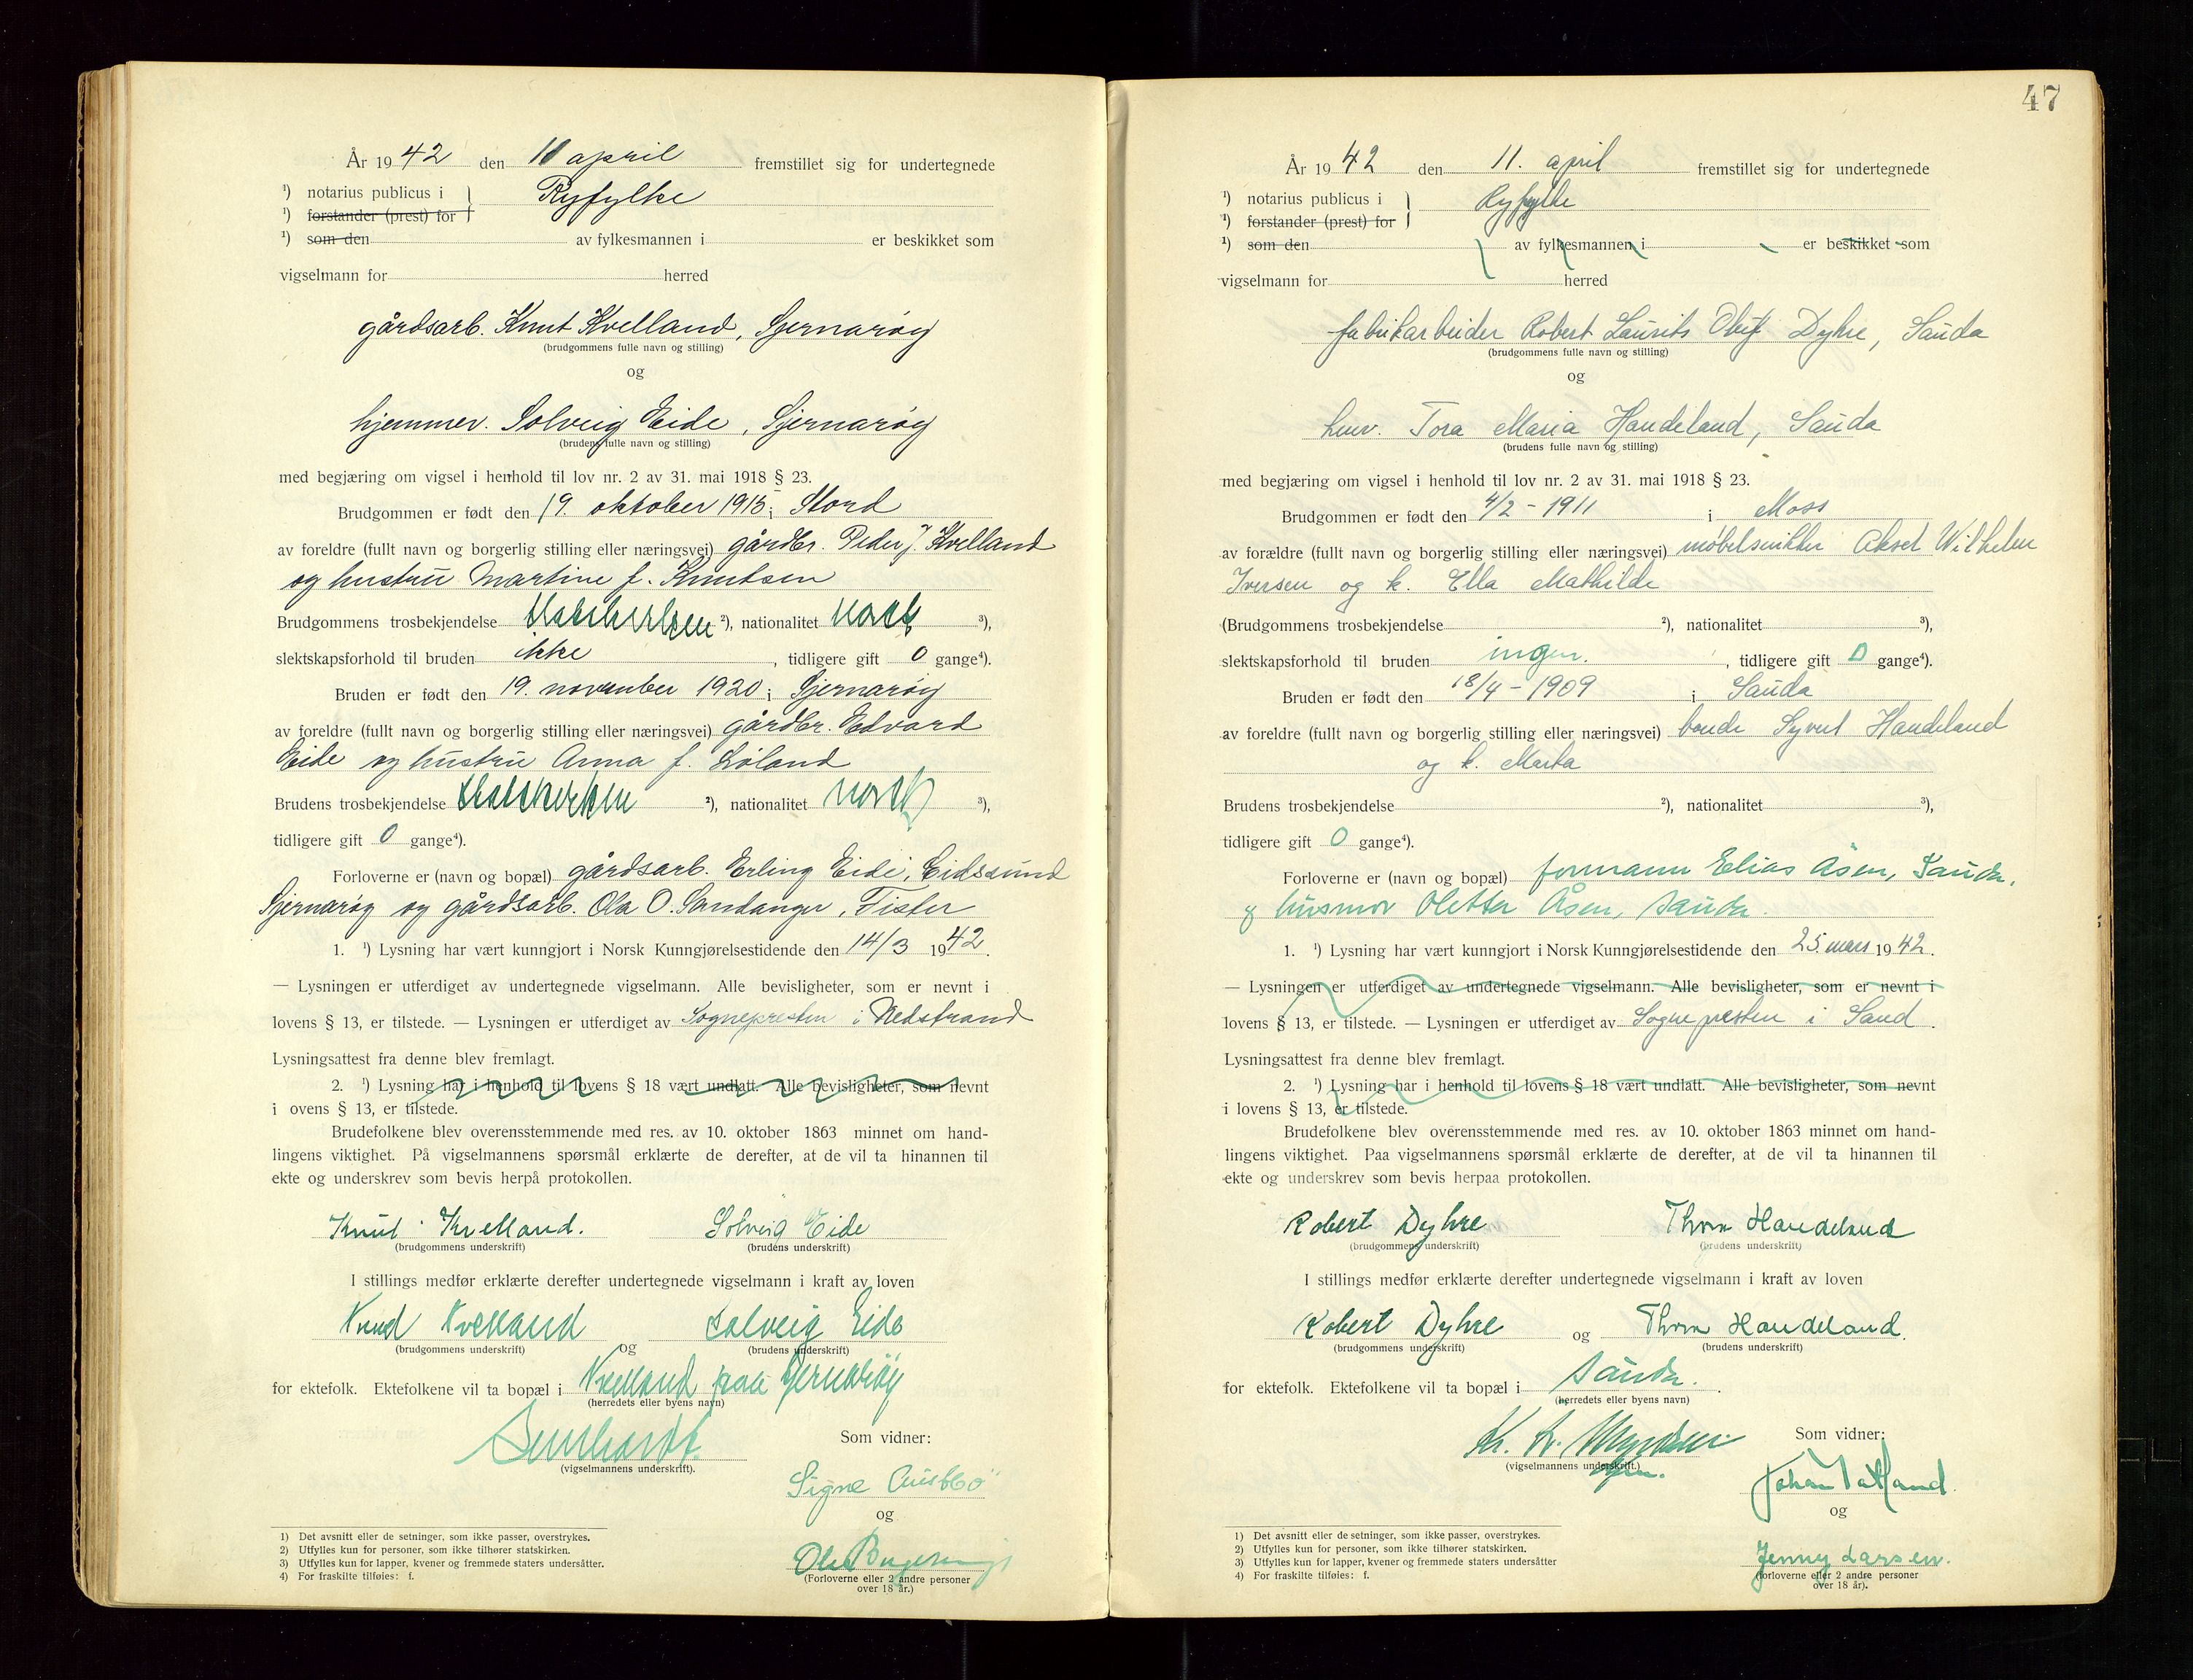 År 1942 den 10 april fremstillet sig for undertegnede
¹) notarius publicus i } Ryfylke
¹) forstander (prest) for
¹) som den av fylkesmannen i er beskikket som
vigselmann for herred
gårdsarb. Knut Kvelland, Sjernarøy
(brudgommens fulle navn og stilling)
og
hjemmev. Solveig Eide, Sjernarøy
(brudens fulle navn og stilling)
med begjæring om vigsel i henhold til lov nr. 2 av 31. mai 1918 § 23.
Brudgommen er født den 19. oktober 1915 i Stord
av foreldre (fullt navn og borgerlig stilling eller næringsvei) gårdbr. Peder J. Kvelland
og hustru Martine f. Knutsen
Brudgommens trosbekjendelse Statskirken ²), nationalitet norsk ³),
slektskapsforhold til bruden ikke, tidligere gift 0 gange⁴).
Bruden er født den 19. november 1920 i Sjernarøy
av foreldre (fullt navn og borgerlig stilling eller næringsvei) gårdbr. Edvard
Eide og hustru Anna f. Løland
Brudens trosbekjendelse Statskirken ²), nationalitet norsk ³),
tidligere gift 0 gange⁴).
Forloverne er (navn og bopæl) gårdsarb. Erling Eide, Eidssund
Sjernarøy og gårdsarb. Ola O. Sandanger, Fister
1. ¹) Lysning har vært kunngjort i Norsk Kunngjørelsestidende den 14/3 1942.
— Lysningen er utferdiget av undertegnede vigselmann. Alle bevisligheter, som er nevnt i
lovens § 13, er tilstede. — Lysningen er utferdiget av Sognepresten i Nedstrand
Lysningsattest fra denne blev fremlagt.
2. ¹) Lysning har i henhold til lovens § 18 vært undlatt. Alle bevisligheter, som nevnt
i ovens § 13, er tilstede.
Brudefolkene blev overensstemmende med res. av 10. oktober 1863 minnet om hand-
lingens viktighet. På vigselmannens spørsmål erklærte de derefter, at de vil ta hinannen til
ekte og underskrev som bevis herpå protokollen.
Knut Kvelland. Solveig Eide
(brudgommens underskrift) (brudens underskrift)
I stillings medfør erklærte derefter undertegnede vigselmann i kraft av loven
Knud Kvelland og Solveig Eide
(brudgommens underskrift) (brudens underskrift)
for ektefolk. Ektefolkene vil ta bopæl i Kvelland paa Sjernarøy
(herredets eller byens navn)
(vigselmannens underskrift).
Som vidner:
Signe Austbø
og
(Forloverne eller 2 andre personer
over 18 år.)
1) Det avsnitt eller de setninger, som ikke passer, overstrykes.
2) Utfylles kun for personer, som ikke tilhører statskirken.
3) Utfylles kun for lapper, kvener og fremmede staters undersåtter.
4) For fraskilte tilføies: f.
47
År 1942 den 11. april fremstillet sig for undertegnede
¹) notarius publicus i } Ryfylke
¹) forstander (prest) for
¹) som den av fylkesmannen i er beskikket som
vigselmann for herred
fabrikarbeider Robert Laurits Dyhre, Sauda
(brudgommens fulle navn og stilling)
og
Tora Maria Handeland, Sauda
(brudens fulle navn og stilling)
med begjæring om vigsel i henhold til lov nr. 2 av 31. mai 1918 § 23.
Brudgommen er født den 4/2 - 1911 i Moss
av forældre (fullt navn og borgerlig stilling eller næringsvei) møbelsnikker Aksel Wilhelm
Iversen og k. Ella Mathilde
(Brudgommens trosbekjendelse ²), nationalitet ³),
slektskapsforhold til bruden ingen., tidligere gift 0 gange⁴).
Bruden er født den 18/4 - 1909 i Sauda
av foreldre (fullt navn og borgerlig stilling eller næringsvei) bonde Syvert Handeland
og k. Marta
Brudens trosbekjendelse ²), nationalitet ³),
tidligere gift 0 gange⁴).
Forloverne er (navn og bopæl) formann Elias Åsen, Sauda,
og husmor Olette Åsen, Sauda.
1. ¹) Lysning har vært kunngjort i Norsk Kunngjørelsestidende den 25. mars 1942.
— Lysningen er utferdiget av undertegnede vigselmann. Alle bevisligheter, som er nevnt i
lovens § 13, er tilstede. — Lysningen er utferdiget av Sognepresten i Sand.
Lysningsattest fra denne blev fremlagt.
2. ¹) Lysning har i henhold til lovens § 18 vært undlatt. Alle bevisligheter, som nevnt
i lovens § 13, er tilstede.
Brudefolkene blev overensstemmende med res. av 10. oktober 1863 minnet om hand-
lingens viktighet. Paa vigselmannens spørsmål erklærte de derefter, at de vil ta hinannen til
ekte og underskrev som bevis herpaa protokollen.
Robert Dyhre Thora Handeland
(brudgommens underskrift) (brudens underskrift)
I stillings medfør erklærte derefter undertegnede vigselmann i kraft av loven
Robert Dyhre og Thora Handeland.
(brudgommens underskrift) (brudens underskrift)
for ektefolk. Ektefolkene vil ta bopæl i Sauda.
(herredets eller byens navn)
(vigselmannens underskrift.)
Som vidner:
og
Jenny Larsen.
(forloverne eller 2 andre personer
over 18 år).
1) Det avsnitt eller de setninger, som ikke passer, overstrykes.
2) Utfylles kun for personer, som ikke tilhører statskirken.
3) Utfylles kun for lapper, kvener og fremmede staters undersåtter
4) For fraskilte tilføies: f.